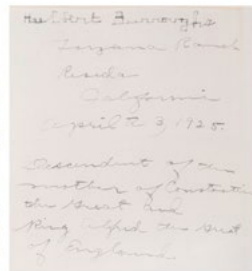 Hulbert Burroughs
Tarzana Ranch
Reseda
California
April 23, 1925.
Descendent of the
mother of Constantine
the Great and
King Alfred the Great
of England